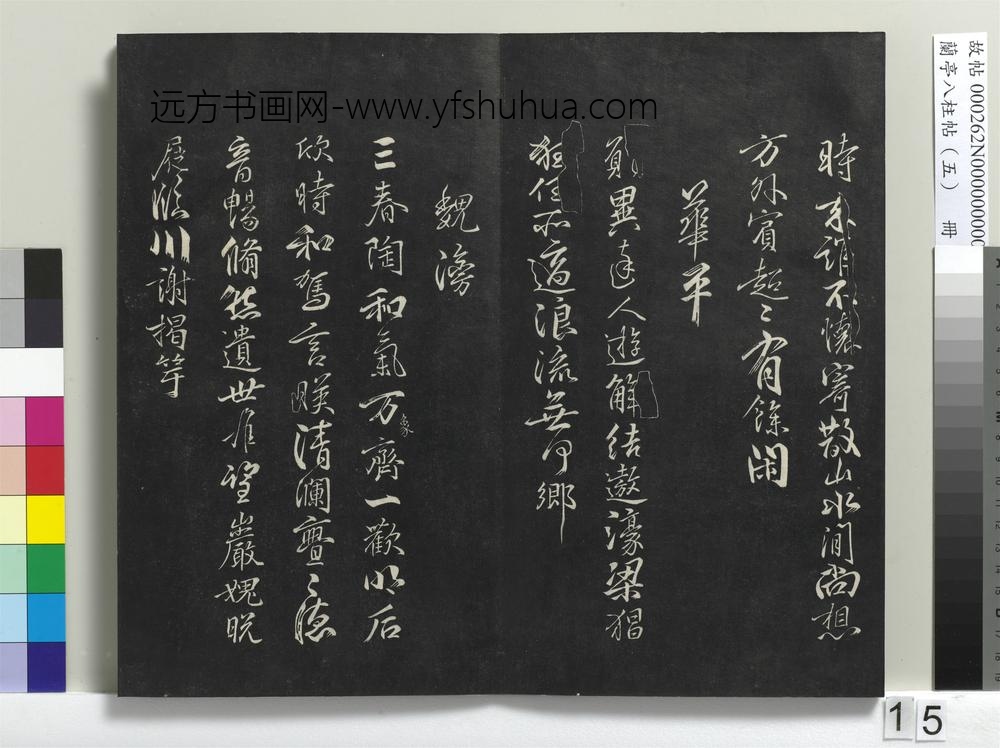 時来誰不懷寄散山水間尚想
方外賓超〻有餘閑
華平
異達人遊解結遨濠梁狂
狂任所適浪流無何鄉
魏滂
三春陶和氣万象齊一歡明后
欣時和駕言暎清瀾亹〻德
音暢脩然遺世難望巖愧脫
屣臨川謝揭竿
远方书画网-www.yfshuhua.com
故帖 000262N000000000
蘭亭八柱帖（五） 冊
15